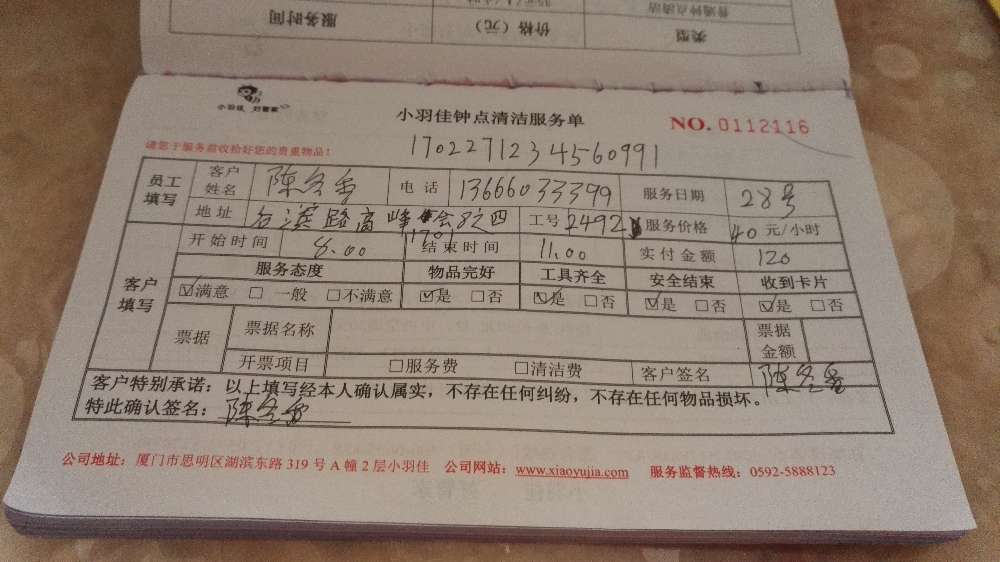 服务时间 价格（元） 类型
小羽佳 好管家
小羽佳钟点清洁服务单
NO. 0112116
1702271234560991
请您于服务前收检好您的贵重物品！
员工填写 客户姓名 陈冬香 电话 13666033399 服务日期 28号
地址 路高峰 工号 2492 服务价格 40 元/小时
1701
客户填写 开始时间 8.00 结束时间 11.00 实付金额 120
服务态度 物品完好 工具齐全 安全结束 收到卡片
☑满意 □一般 □不满意 ☑是 □否 ☑是 □否 ☑是 □否 ☑是 □否
票据 票据名称 票据金额
开票项目 □服务费 □清洁费 客户签名 陈冬香
客户特别承诺：以上填写经本人确认属实，不存在任何纠纷，不存在任何物品损坏。
特此确认签名：陈冬香
公司地址：厦门市思明区湖滨东路 319 号 A 幢 2 层小羽佳 公司网站：www.xiaoyujia.com 服务监督热线：0592-5888123